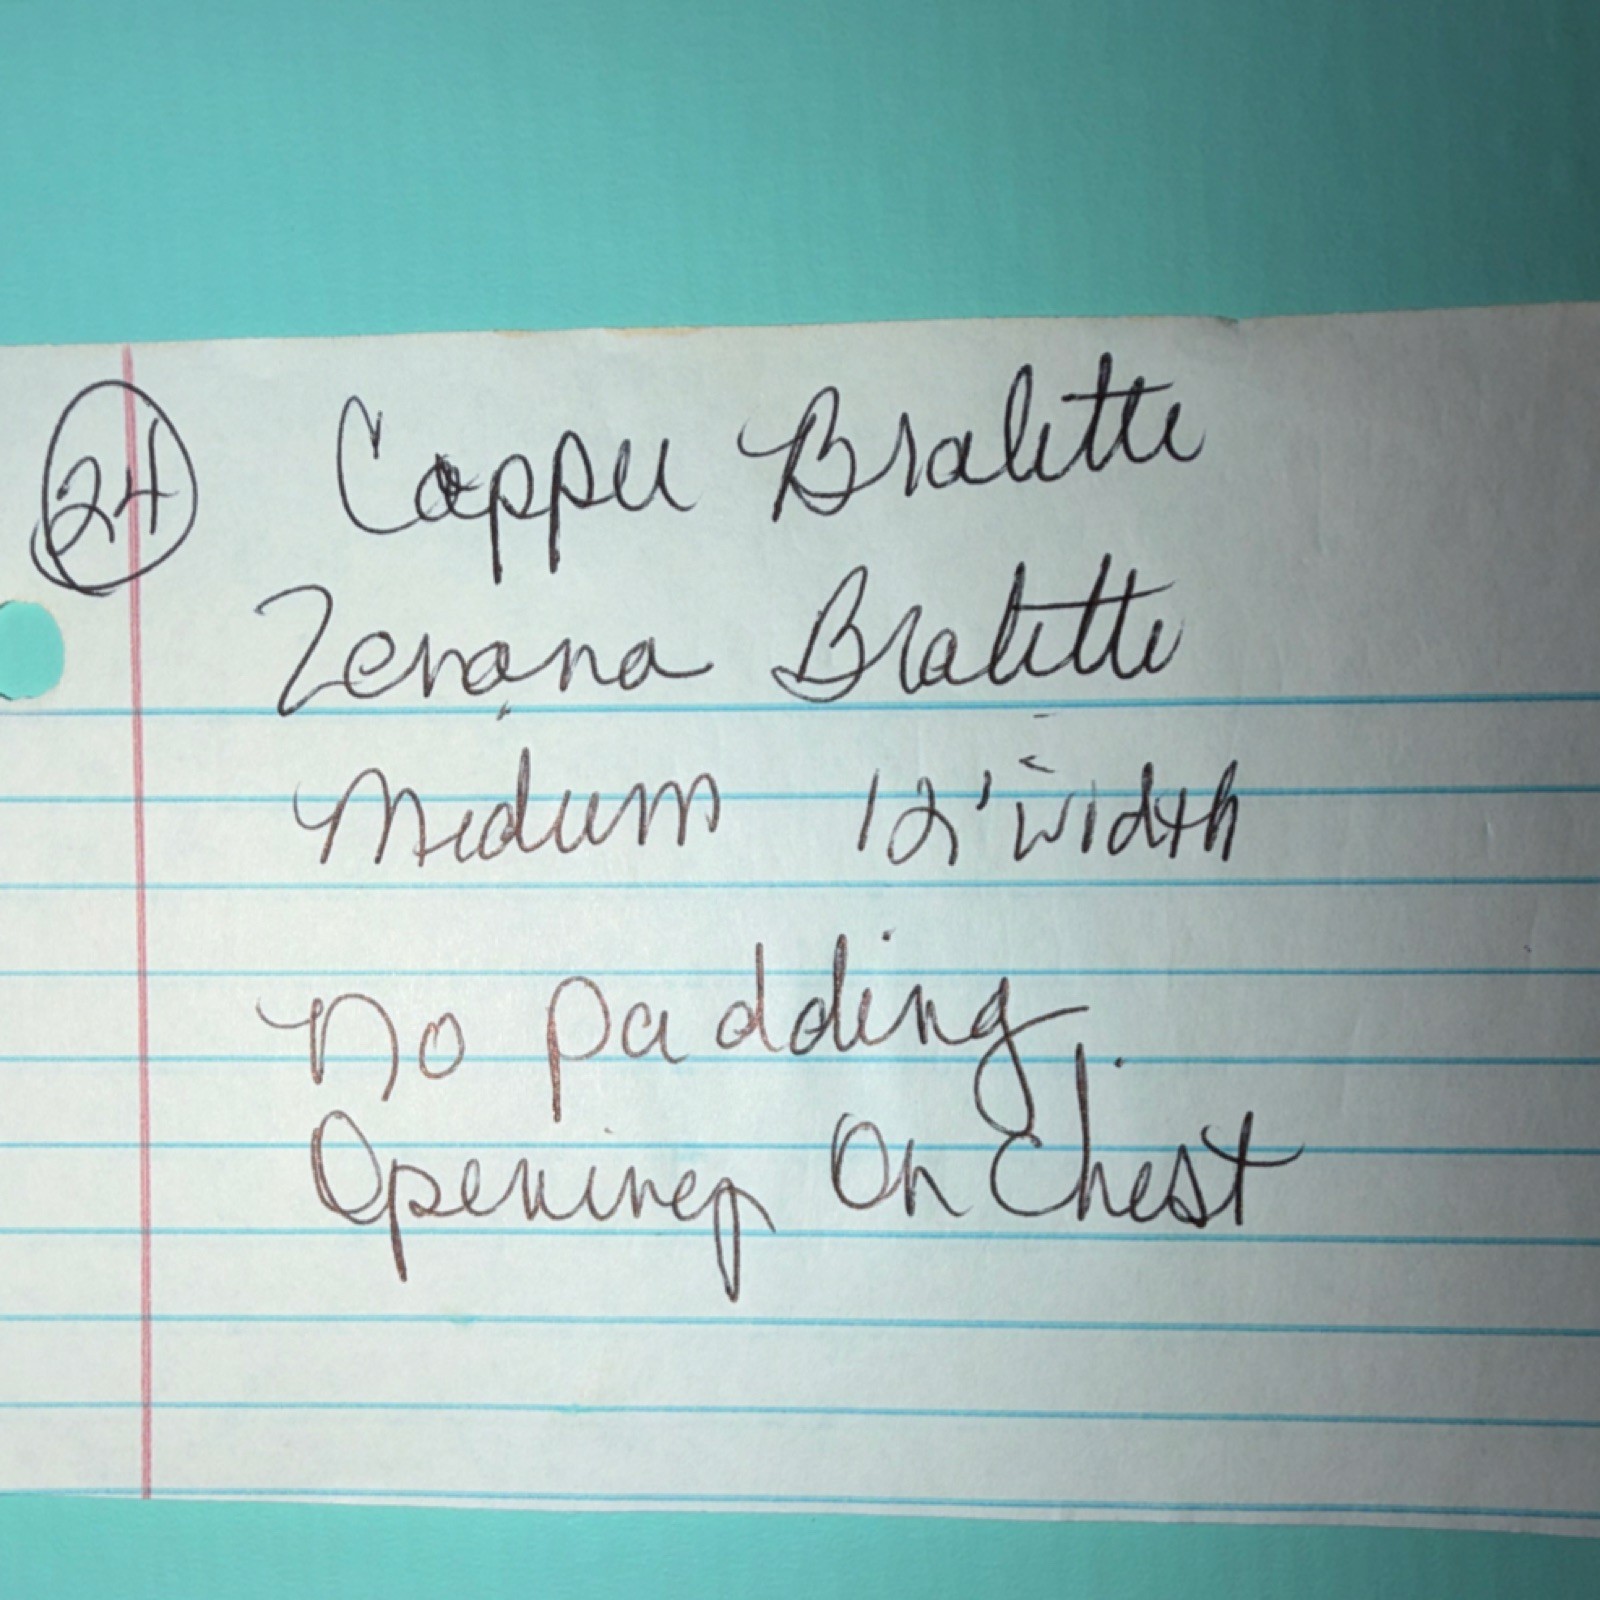 24 Copper Bralette
Zenana Bralette
Medium 12" width
No padding
Opening On Chest